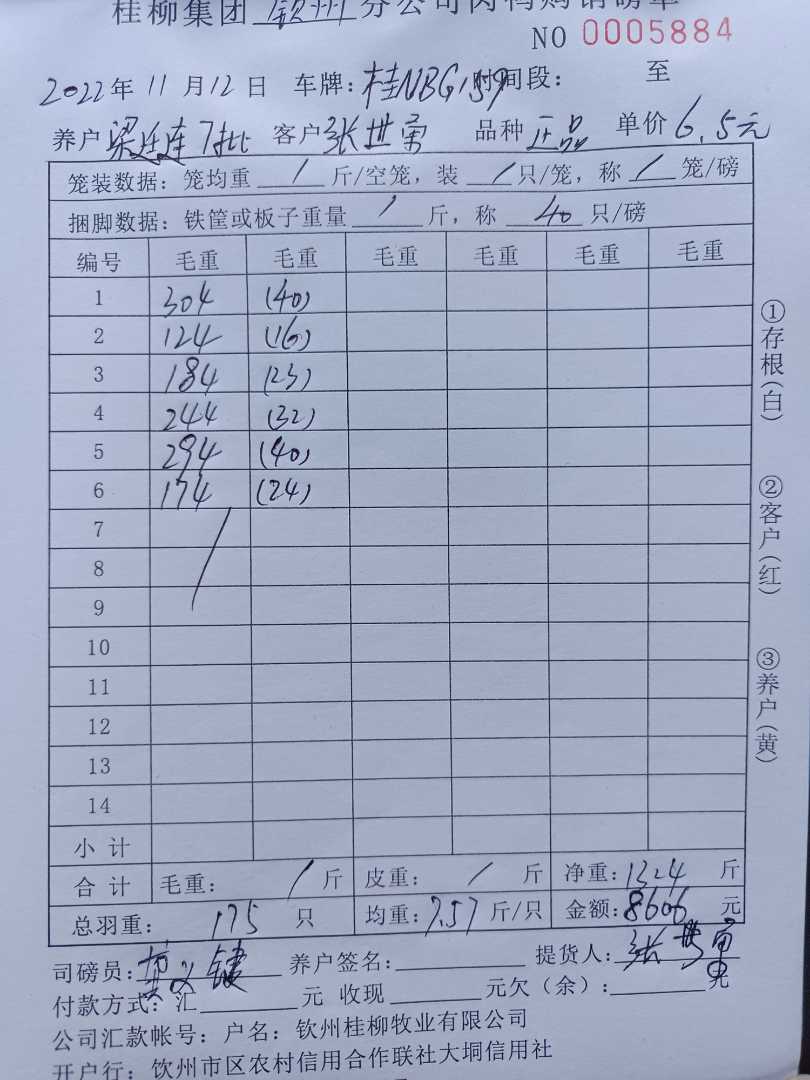 桂柳集团 钦州 分公司肉鸭购销磅单
NO 0005884
2022年 11 月 12 日 车牌：桂NBG159 时间段： 至
养户 梁廷连7批 客户 张世勇 品种 正品 单价 6.5元
笼装数据：笼均重 / 斤/空笼，装 / 只/笼，称 / 笼/磅
捆脚数据：铁筐或板子重量 / 斤，称 40 只/磅
编号 毛重 毛重 毛重 毛重 毛重 毛重
1 304 (40)
2 124 (16)
3 184 (23)
4 244 (32)
5 294 (40)
6 174 (24)
7 /
8
9
10
11
12
13
14
小 计
合 计 毛重： / 斤 皮重： / 斤 净重：1324 斤
总羽重： 175 只 均重：7.57 斤/只 金额：8606 元
司磅员： 养户签名： 提货人：张世勇
付款方式：汇 元 收现 元欠（余）： 元
公司汇款帐号：户名：钦州桂柳牧业有限公司
开户行：钦州市区农村信用合作联社大垌信用社
①存根（白）
②客户（红）
③养户（黄）